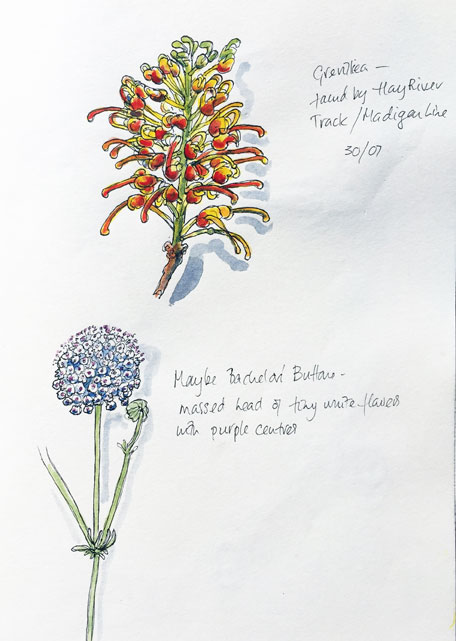 Grevillea –
found by Hay River
Track / Madigan Line
30/07
Maybe Bachelors Buttons –
massed head of tiny white flowers
with purple centres